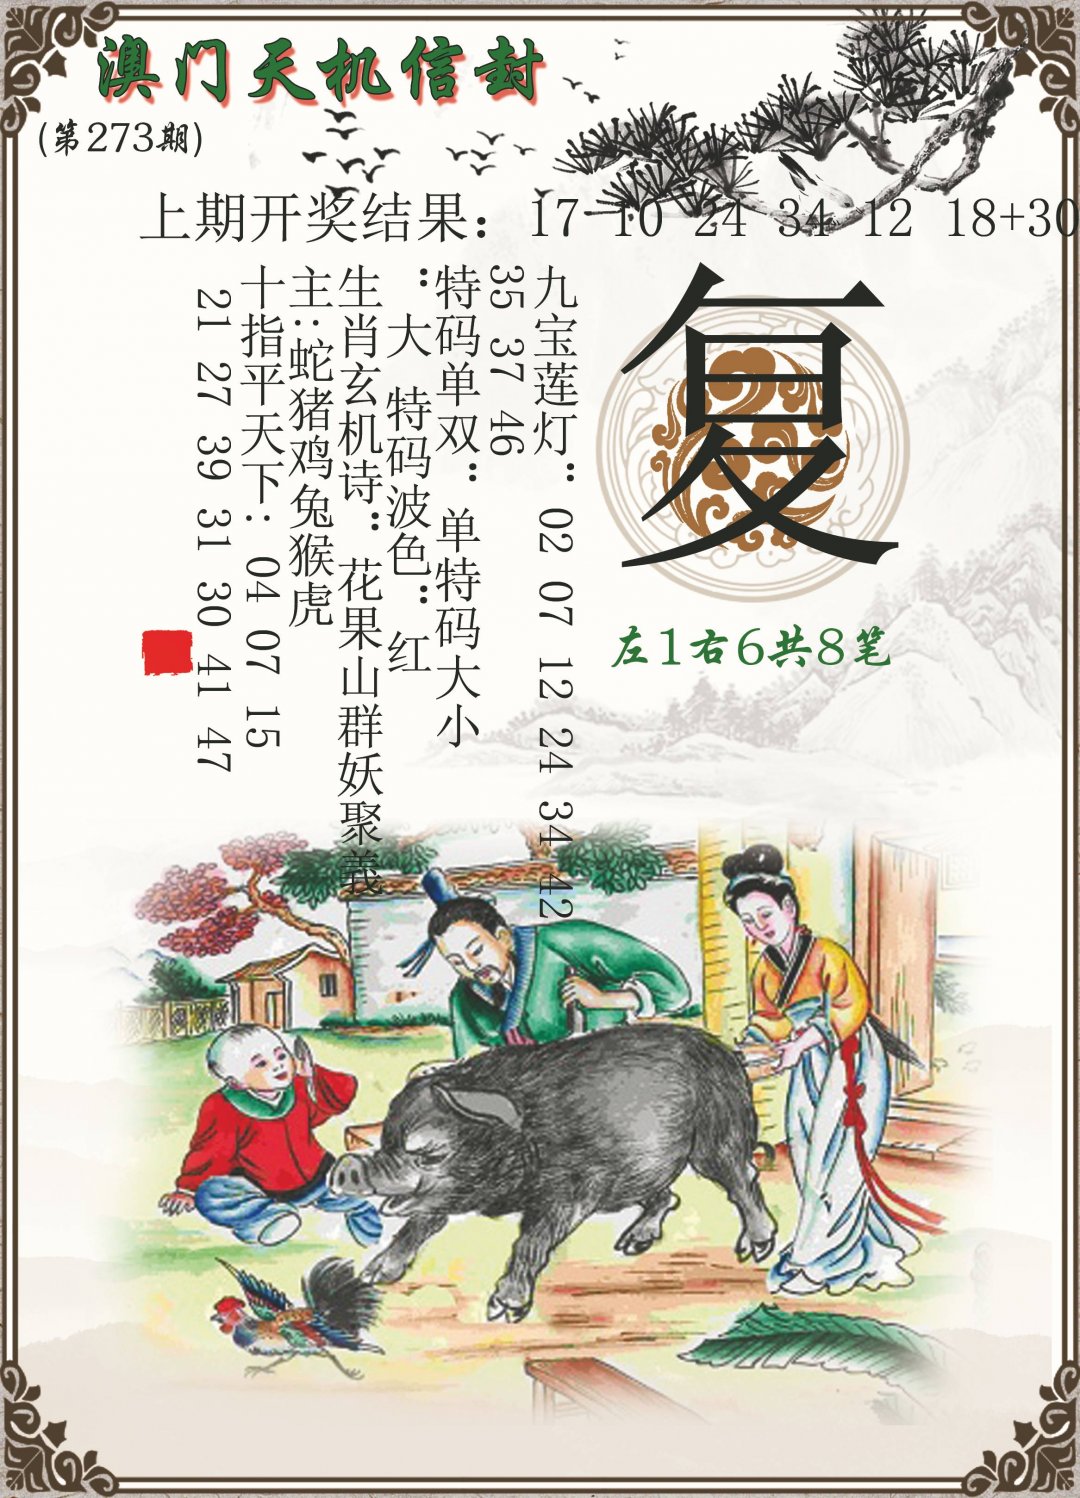 澳门天机信封
(第273期)
上期开奖结果：17 10 24 34 12 18+30
复
左1右6共8笔
九宝莲灯：02 07 12 24 34 42
35 37 46
特码单双：单特码大小
：大 特码波色：红
生肖玄机诗：花果山群妖聚義
主：蛇猪鸡兔猴虎
十指平天下：04 07 15
21 27 39 31 30 41 47